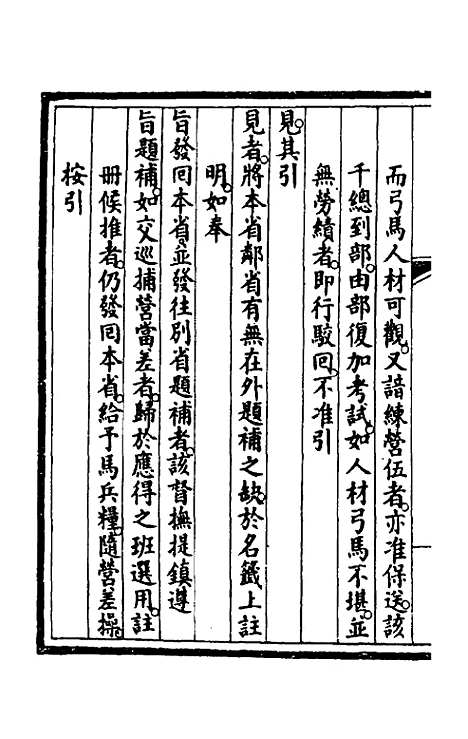 而弓馬人材可觀。又諳練營伍者。亦准保送。該
千總到部。由部復加考試。如人材弓馬不堪。並
無勞績者。即行駁回。不准引
見。其引
見者。將本省鄰省有無在外題補之缺。於名籤上註
明。如奉
旨發回本省。並發往別省題補者。該督撫提鎮遵
旨題補。如交巡捕營當差者。歸於應得之班選用。註
冊候推者。仍發回本省。給予馬兵糧。隨營差操。
按引